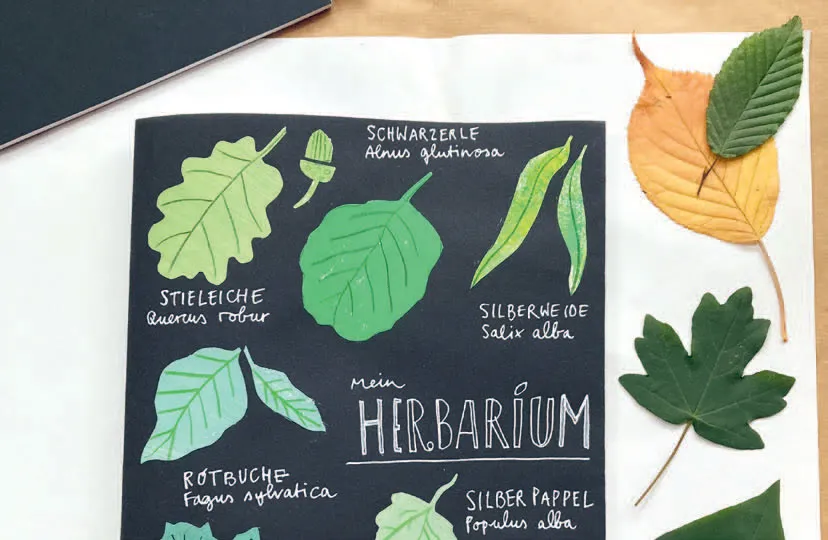 SCHWARZERLE
Alnus glutinosa
STIELEICHE
Quercus robur
SILBERWEIDE
Salix alba
mein
HERBARIUM
ROTBUCHE
Fagus sylvatica
SILBERPAPPEL
Populus alba